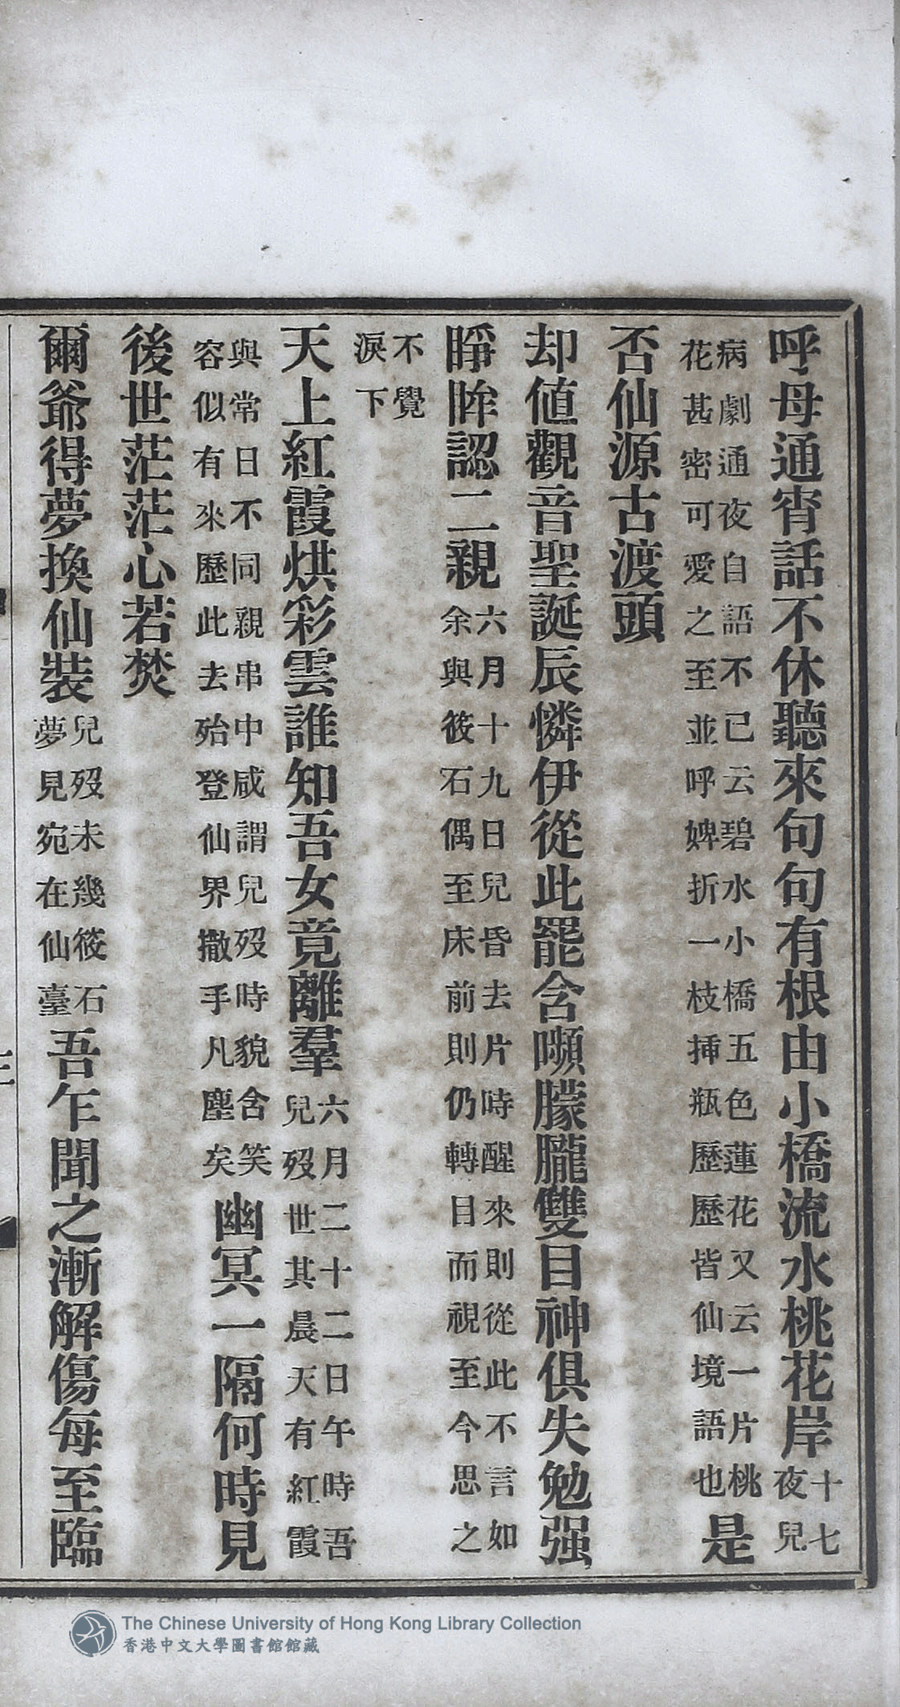 呼母通宵話不休聽來句句有根由小橋流水桃花岸十七夜兒
病劇通夜自語不已云碧水小橋五色蓮花又云一片桃花甚密可愛之至並呼婢折一枝挿瓶歷歷皆仙境語也是
否仙源古渡頭
却值觀音聖誕辰憐伊從此罷含嚬朦朧雙目神俱失勉强
睜眸認二親六月十九日兒昏去片時醒來則從此不言如余與筱石偶至床前則仍轉目而視至今思之
不覺淚下
天上紅霞烘彩雲誰知吾女竟離羣六月二十二日午時吾兒歿世其晨天有紅霞
與常日不同親串中咸謂兒歿時貌含笑容似有來歷此去殆登仙界撒手凡塵矣幽冥一隔何時見
後世茫茫心若焚
爾爺得夢換仙裝兒歿未幾筱石夢見宛在仙臺吾乍聞之漸解傷每至臨
The Chinese University of Hong Kong Library Collection
香港中文大學圖書館館藏